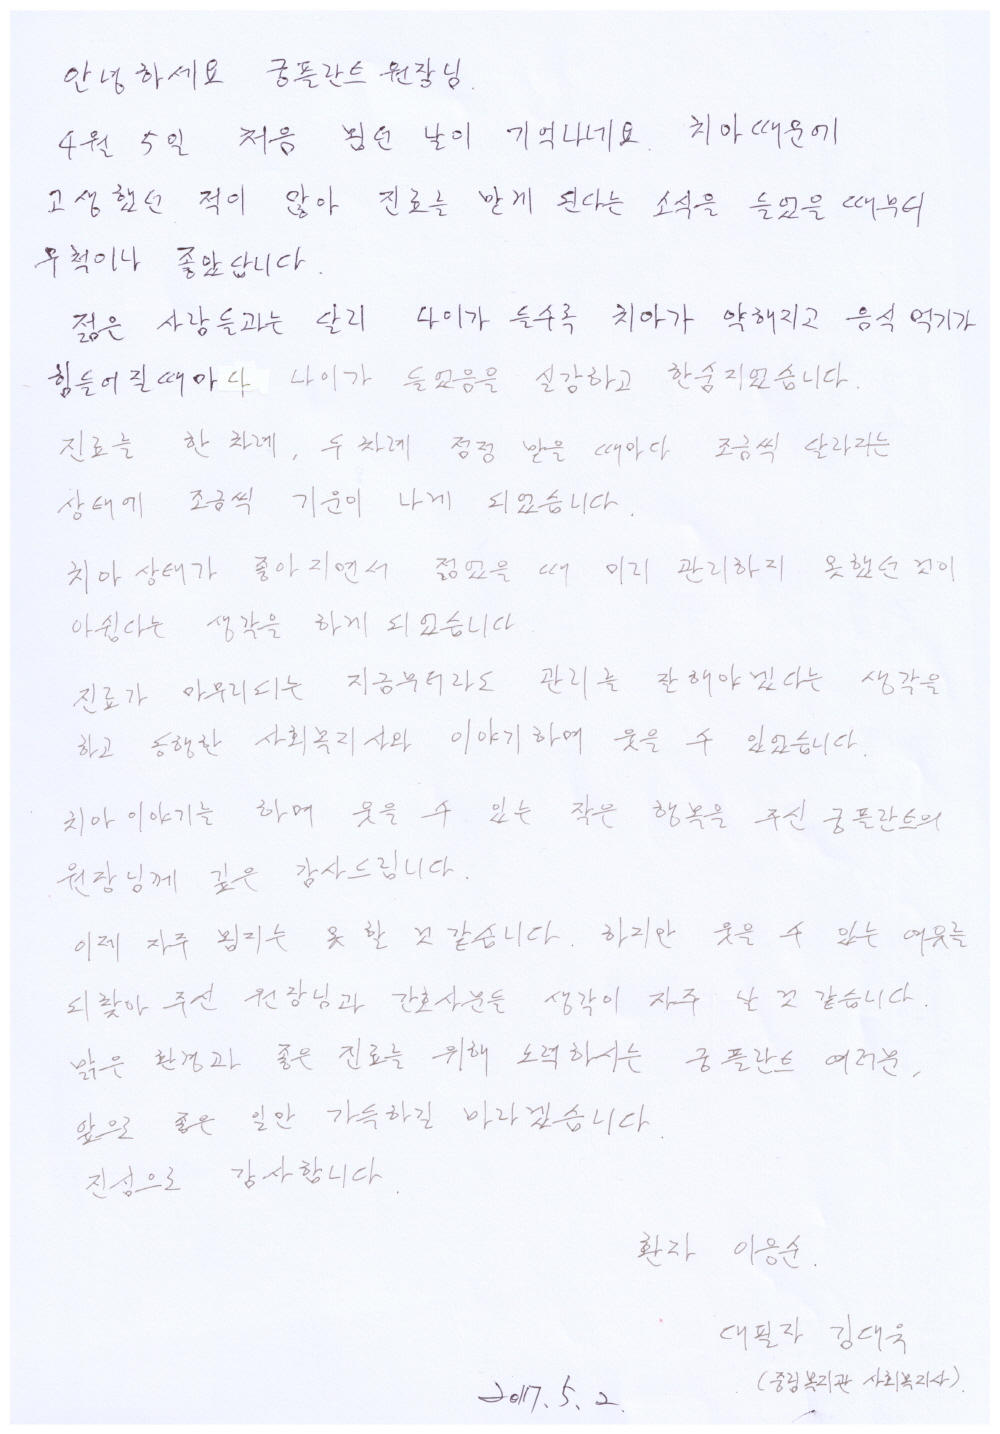 안녕하세요 궁플란트 원장님.
4월 5일 처음 뵙던 날이 기억나네요. 치아때문에
고생했던 적이 많아 진료를 받게 된다는 소식을 들었을 때부터
무척이나 좋았답니다.
젊은 사람들과는 달리 나이가 들수록 치아가 약해지고 음식 먹기가
힘들어질때마다 나이가 들었음을 실감하고 한숨지었습니다.
진료를 한 차례, 두 차례 점점 받을 때마다 조금씩 달라지는
상태에 조금씩 기운이 나게 되었습니다.
치아 상태가 좋아지면서 젊었을 때 미리 관리하지 못했던 것이
아쉽다는 생각을 하게 되었습니다
진료가 마무리되는 지금부터라도 관리를 잘해야겠다는 생각을
하고 동행한 사회복지사와 이야기하며 웃을 수 있었습니다.
치아 이야기를 하며 웃을 수 있는 작은 행복을 주신 궁플란트의
원장님께 깊은 감사드립니다.
이제 자주 뵙지는 못 할 것 같습니다. 하지만 웃을 수 있는 여유를
되찾아 주신 원장님과 간호사분들 생각이 자주 날 것 같습니다.
맑은 환경과 좋은 진료를 위해 노력하시는 궁플란트 여러분,
앞으로 좋은 일만 가득하길 바라겠습니다.
진심으로 감사합니다.
환자 이응순.
대필자 김대욱
(중림복지관 사회복지사).
2017. 5. 2.